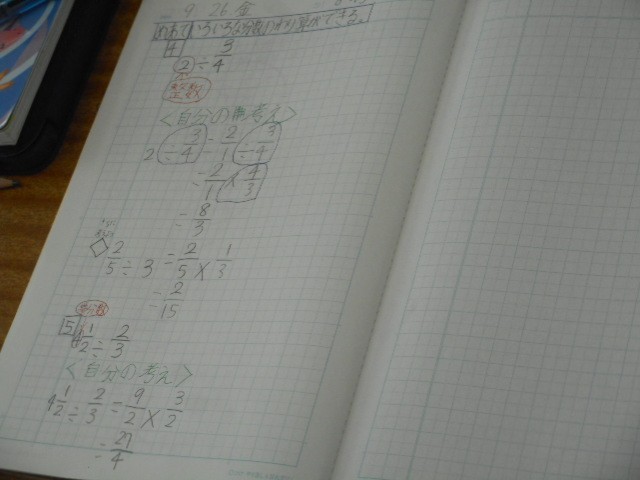 9 26 金
いろいろな分数のわり算ができる。
4 2÷3/4
整数
<自分の考え>
2÷3/4=2/1÷3/4
=2/1×4/3
=8/3
2/5÷3=2/5×1/3
=2/15
帯分数
5 4 1/2÷2/3
<自分の考え>
4 1/2÷2/3=9/2×3/2
=27/4